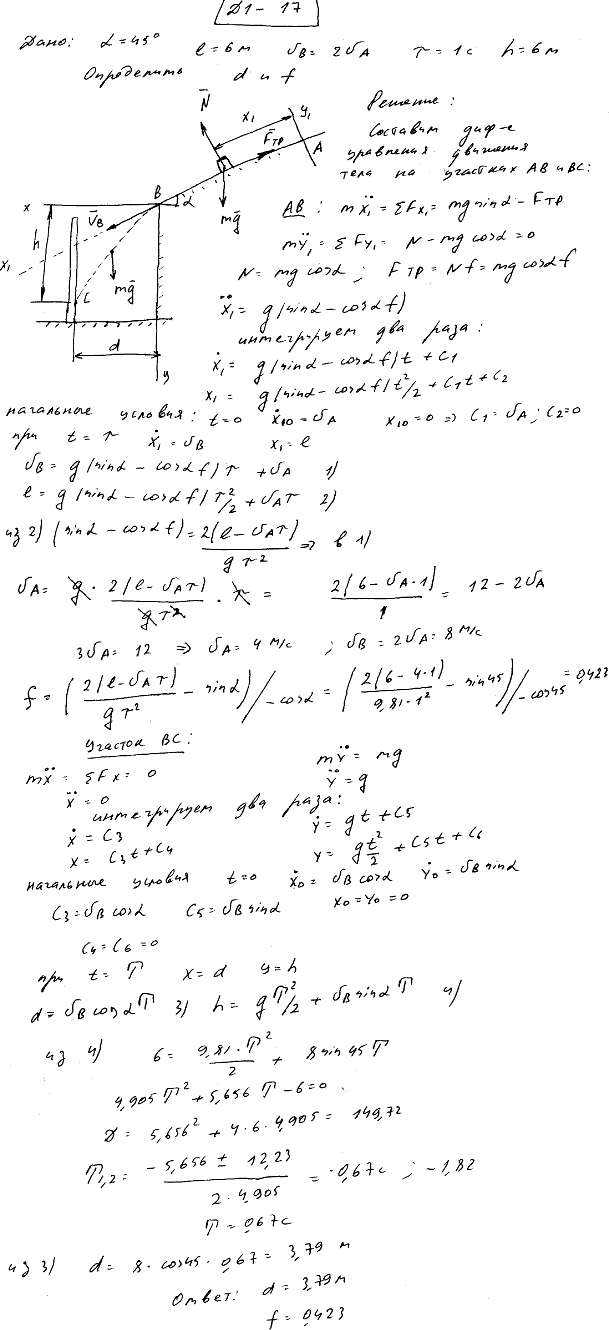 Д1-17
Дано: α=45° l=6м υB=2υA τ=1с h=6м
Определить d и f
Решение:
Составим диф-е
уравнения движения
тела на участках AB и BC:
N̄
x₁
y₁
F̄тр
A
B
α
mḡ
x
V̄B
h
x₁
C
mḡ
d
y
AB: mẍ₁ = ΣFx₁ = mg sinα - Fтр
mÿ₁ = ΣFy₁ = N - mg cosα = 0
N = mg cosα ; Fтр = Nf = mg cosα f
ẍ₁ = g(sinα - cosα f)
интегрируем два раза:
ẋ₁ = g(sinα - cosα f)t + C1
x₁ = g(sinα - cosα f)t²/2 + C1t + C2
начальные условия: t=0 ẋ10=υA x10=0 ⇒ C1=υA; C2=0
при t=τ ẋ₁=υB x₁=l
υB = g(sinα - cosα f)τ + υA 1)
l = g(sinα - cosα f)τ²/2 + υAτ 2)
из 2) (sinα - cosα f) = 2(l-υAτ)/gτ² ⇒ в 1)
υA = g · 2(l-υAτ)/gτ² · τ = 2(6-υA·1)/1 = 12-2υA
3υA = 12 ⇒ υA = 4 м/с ; υB = 2υA = 8 м/с
f = (2(l-υAτ)/gτ² - sinα)/-cosα = (2(6-4·1)/9,81·1² - sin45)/-cos45 = 0,423
Участок BC:
mẍ = ΣFx = 0 mÿ = mg
ẍ = 0 ÿ = g
интегрируем два раза:
ẋ = C3 ẏ = gt + C5
x = C3t + C4 y = gt²/2 + C5t + C6
начальные условия t=0 ẋ0=υB cosα ẏ0=υB sinα
C3=υB cosα C5=υB sinα x0=y0=0
C4=C6=0
при t=T x=d y=h
d=υB cosα T 3) h=gT²/2 + υB sinα T 4)
из 4) 6 = 9,81·T²/2 + 8 sin45 T
4,905T² + 5,656T - 6 = 0
D = 5,656² + 4·6·4,905 = 149,72
T1,2 = -5,656 ± 12,23/2·4,905 = 0,67с ; -1,82
T = 0,67с
из 3) d = 8·cos45·0,67 = 3,79 м
Ответ: d = 3,79м
f = 0,423